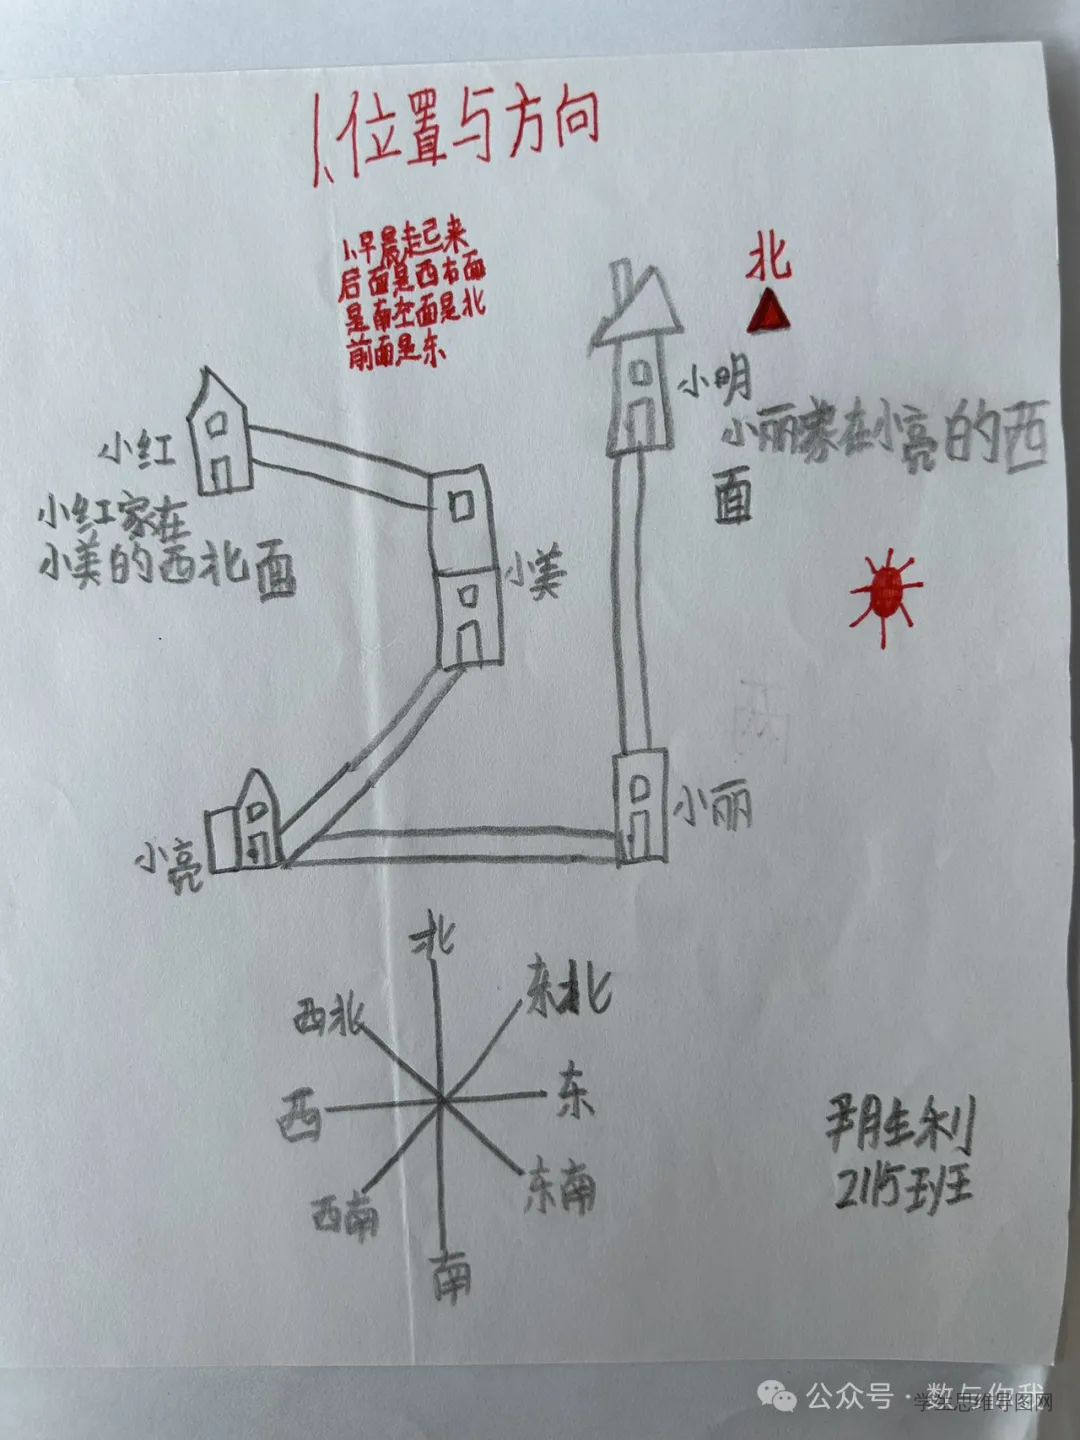 1.位置与方向
1.早晨走己来
后面是西右面
是南左面是北
前面是东
北
小明
小丽家在小亮的西
面
小红
小红家在
小美的西北面
小美
小丽
小亮
北
西北
东北
西
东
西南
东南
南
胜利
2115班
公众号·数与你我
学生思维导图网